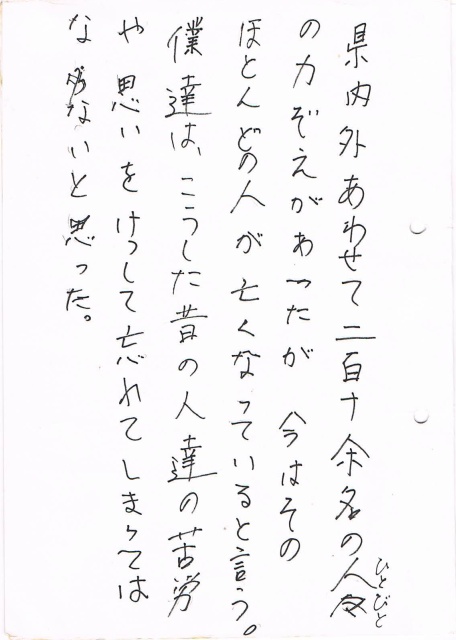 県内外あわせて二百十余名の人々
ひとびと
の力ぞえがあったが 今はその
ほとんどの人が亡くなっていると言う。
僕達は、こうした昔の人達の苦労
や思いをけっして忘れてしまっては
なないと思った。